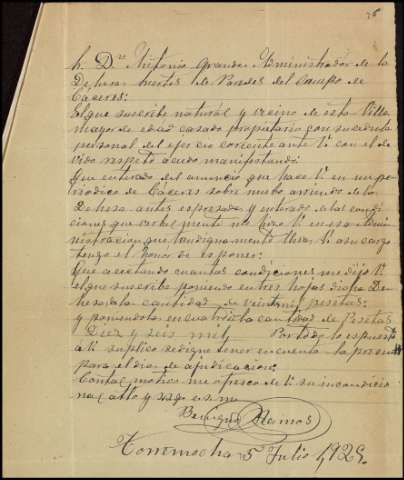 Dn. Antonio Grande Administrador de la
Dehesa de Paredes del Campo de
Cáceres:
El que suscribe natural y vecino de esta Villa
mayor de edad casado propietario con su cedula
personal del ejercicio corriente ante U con el de
vido respeto acudo manifestando:
Que enterado del anuncio que hace U en un pe
riodico de Cáceres sobre nuevo arriendo de la
Dehesa antes espresada y enterado de las condi
ciones que me U en esa Admi
nistracion que tan dignamente lleva U a su cargo
tengo el honor de esponer:
Que acectando cuantas condiciones me dijo U
el que suscribe poniendo en tres hojas dicha De
hesa la cantidad de veintemil pesetas:
y poniendola en cuatro la cantidad de Pesetas
Diez y seis mil Por todo lo espuesto
a U suplico se digne tener en cuenta la presente
para el dia de ajudicacion.
Con tal motivo me ofresco de U su incondicio
nal atto y sgo s s
Benigno Ramos
Torremocha 5 Julio 1925.